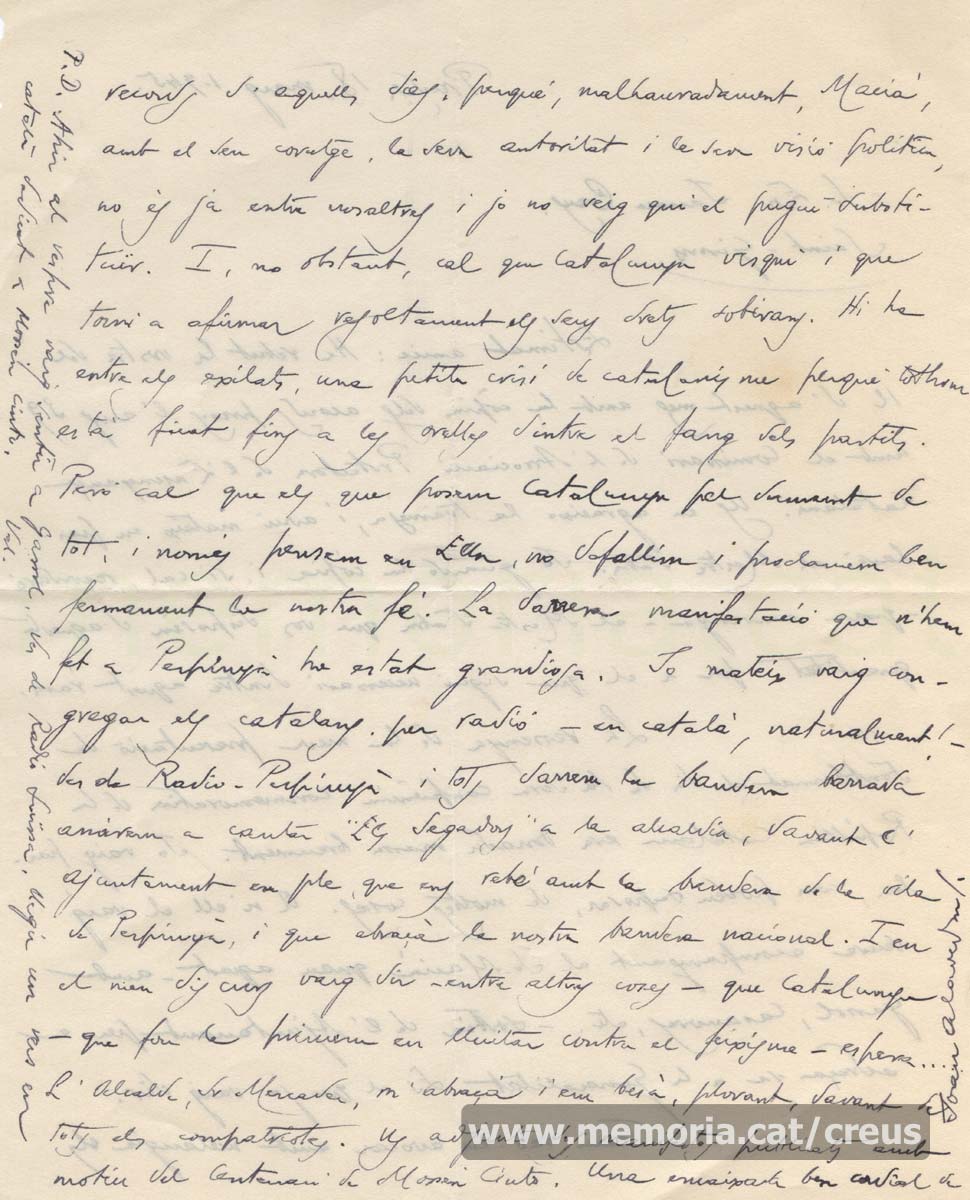 records d'aquells dies, perquè, malhauradament, Macià,
amb el seu coratge, la seva autoritat i la seva visió política,
no és ja entre nosaltres i jo no veig qui el pugui substi-
tuïr. I, no obstant, cal que Catalunya visqui i que
torni a afirmar resoltament els seus drets sobirans. Hi ha
entre els exilats, una petita crisi de catalanisme perquè tothom
està ficat fins a les orelles dintre el fang dels partits.
Però cal que els que posem Catalunya pel damunt de
tot, i només pensem en Ella, no defallim i proclamem ben
fermament la nostra fé. La darrera manifestació que n'hem
fet a Perpinyà ha estat grandiosa. Jo mateix vaig con-
gregar els catalans per radió – en català, naturalment! –
des de Radio-Perpinyà i tots darrera la bandera barrada
anàrem a cantar "Els Segadors" a la alcaldia, davant l'
ajuntament en ple, que ens rebé amb la bandera de la vila
de Perpinyà, i que abraçà la nostra bandera nacional. I en
el meu discurs vaig dir – entre altres coses – que Catalunya
– que fou la primera en lluitar contra el feixisme – espera...
L'Alcalde, Sr Mercader, m'abraçà i em besà, plorant, davant de
tots els compatriotes. Us adjunt els amb
motiu del Centenari de Mossèn Cinto. Una enaixada ben cordial de
Joan Alavedra
P.D. Ahir al vespre vaig sentir a Gassol, des de Radio Suïssa, llegir un vers en
català dedicat a Mossèn Cinto.
Val.
www.memoria.cat/creus